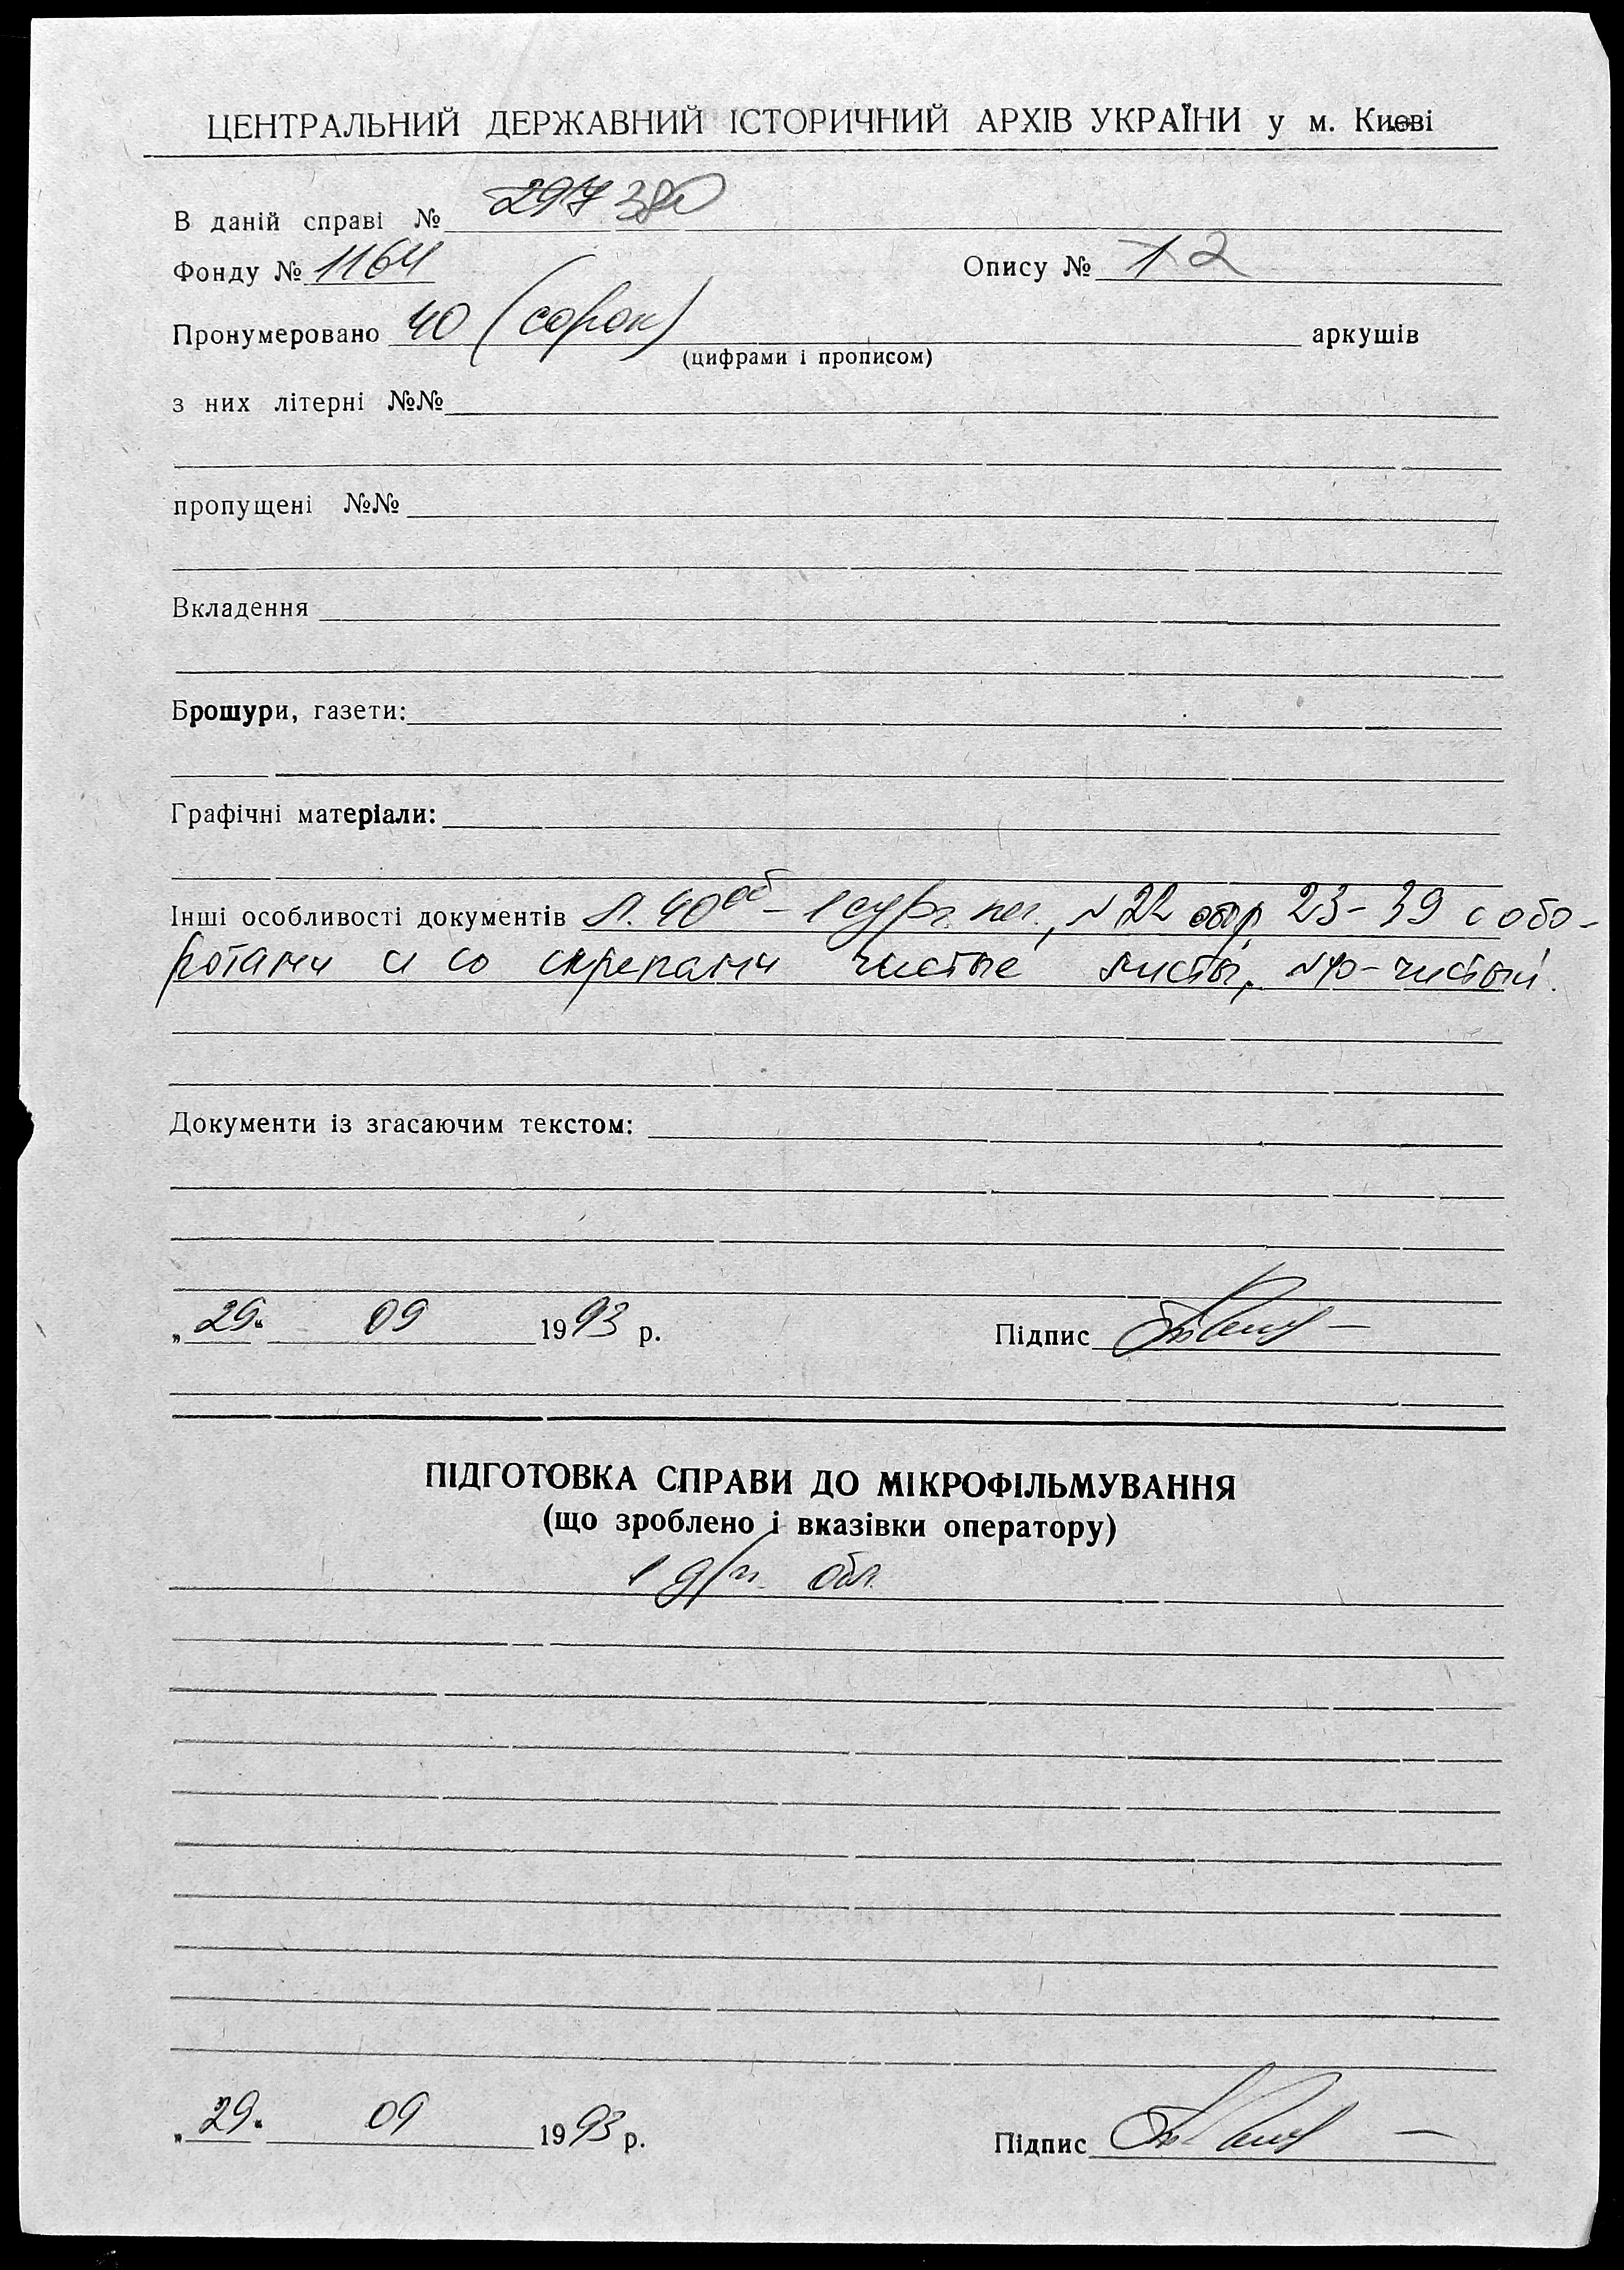 ЦЕНТРАЛЬНИЙ ДЕРЖАВНИЙ ІСТОРИЧНИЙ АРХІВ УКРАЇНИ у м. Києві
В даній справі № 297 380
Фонду № 1164 Опису № 1 2
Пронумеровано 40 (сорок) аркушів
(цифрами і прописом)
з них літерні №№
пропущені №№
Вкладення
Брошури, газети:
Графічні матеріали:
Інші особливості документів Л. 40об – 1 сург. печ., л 22 обор, 23-39 с обо-
ротами и со скрепами чистые листы, л 40 - чистый.
Документи із згасаючим текстом:
„29" 09 1993 р. Підпис
ПІДГОТОВКА СПРАВИ ДО МІКРОФІЛЬМУВАННЯ
(що зроблено і вказівки оператору)
1 обл.
„29" 09 1993 р. Підпис